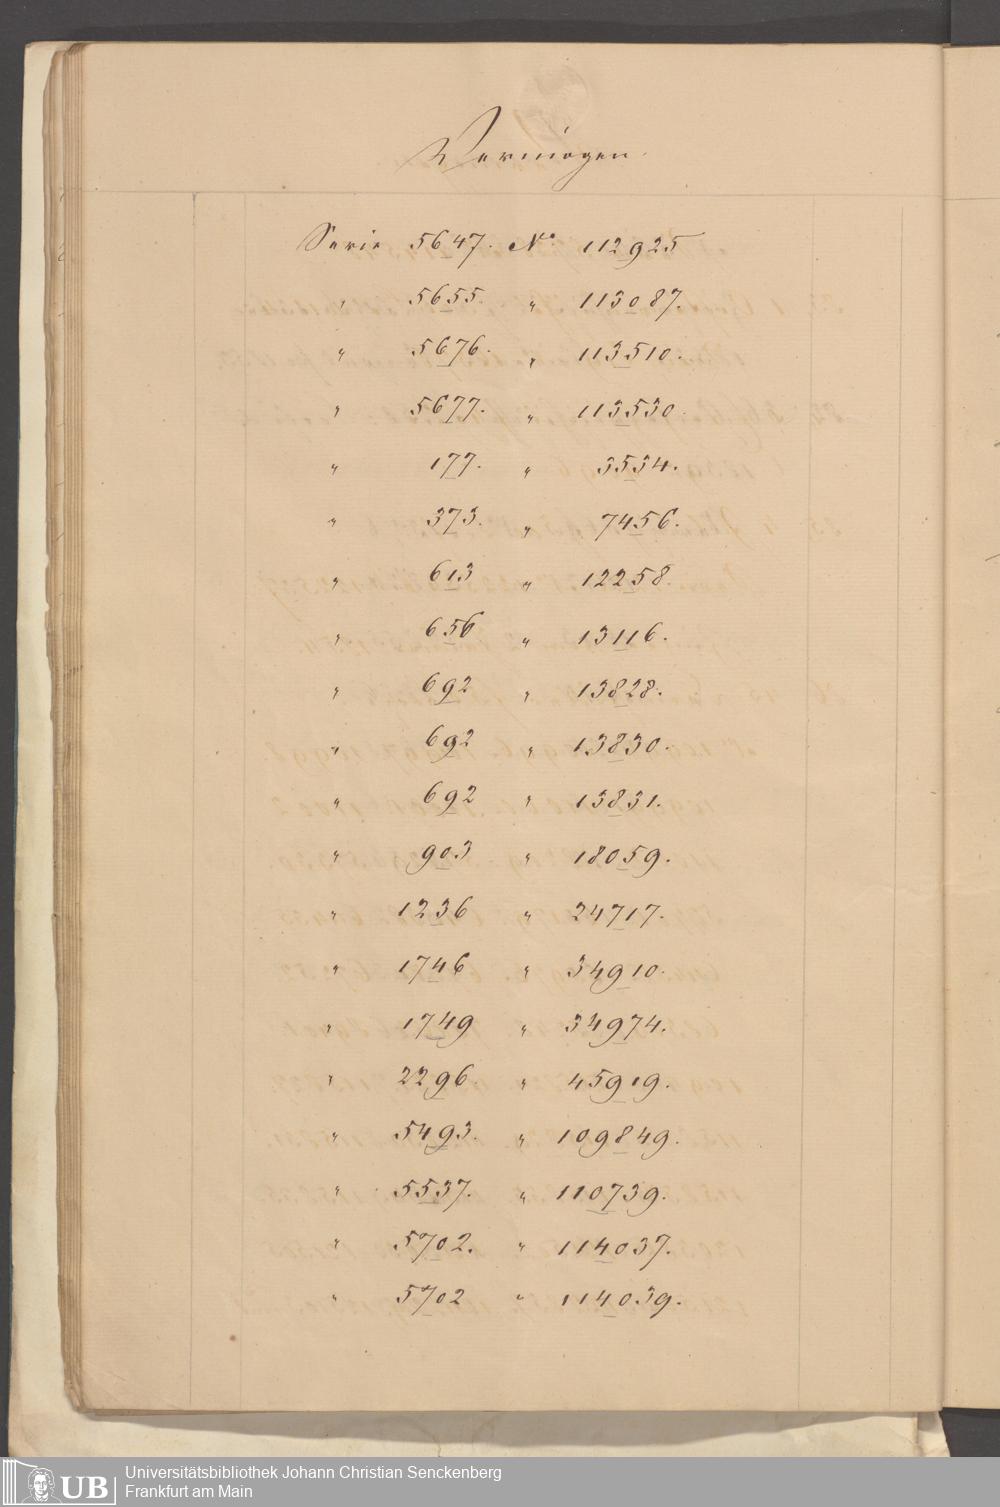 Vermögen.
Serie 5647. No. 112925
" 5655. " 113087.
" 5676. " 113510.
" 5677. " 113530.
" 177. " 3534.
" 373. " 7456.
" 613 " 12258.
" 656 " 13116.
" 692 " 13828.
" 692 " 13830.
" 692 " 13831.
" 903 " 18059.
" 1236 " 24717.
" 1746 " 34910.
" 1749 " 34974.
" 2296 " 45919.
" 5493. " 109849.
" 5537. " 110739.
" 5702. " 114037.
" 5702 " 114039.
UB Universitätsbibliothek Johann Christian Senckenberg
Frankfurt am Main